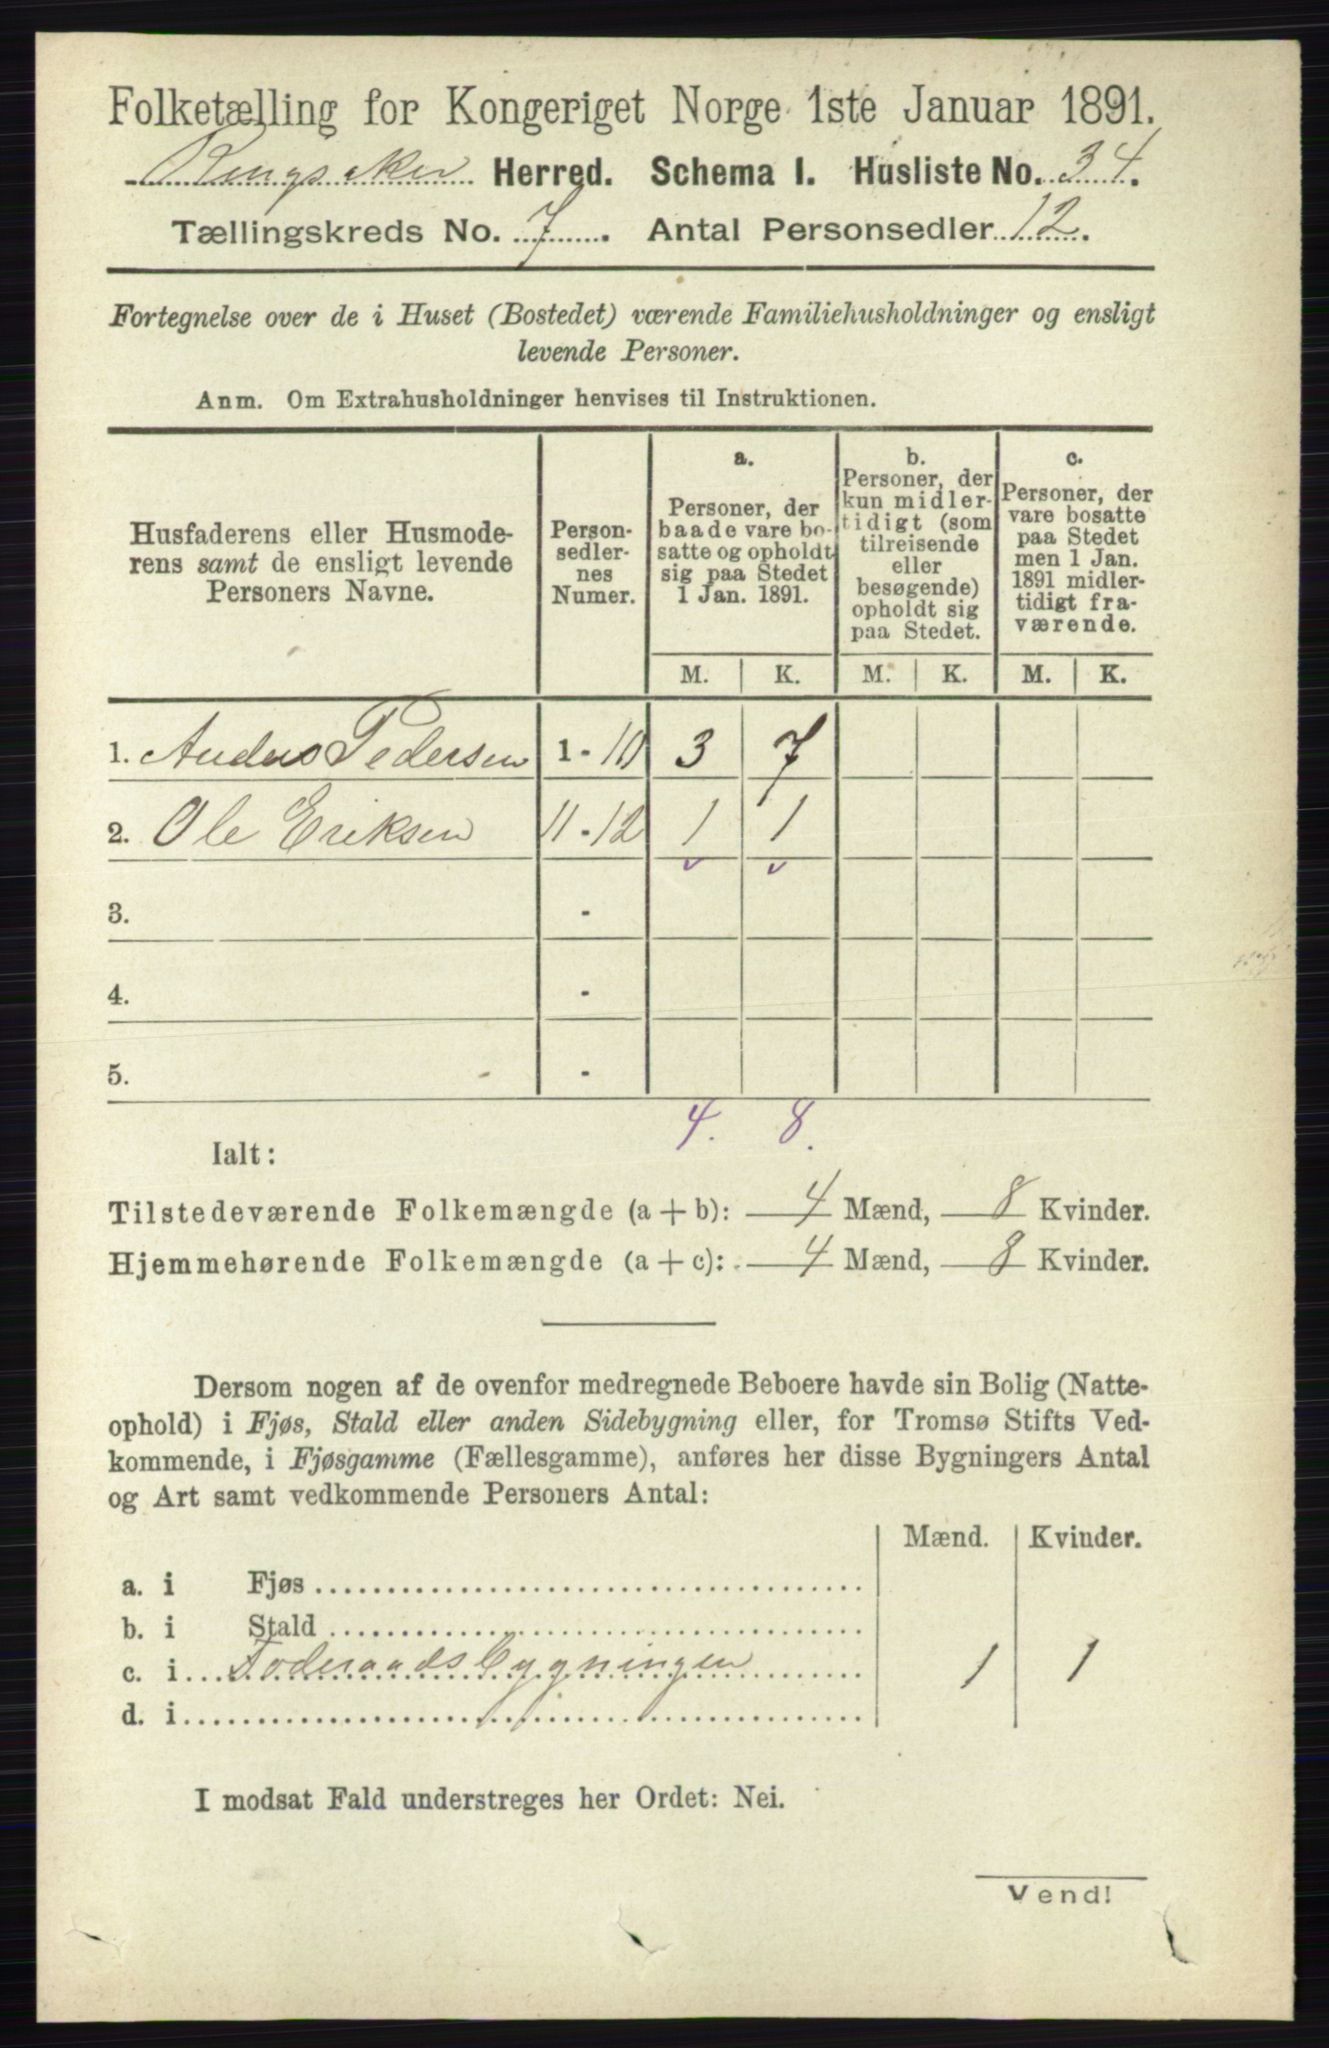 Folketælling for Kongeriget Norge 1ste Januar 1891.
Ringsaker Herred. Schema I. Husliste No. 34.
Tællingskreds No. 7. Antal Personsedler 12.
Fortegnelse over de i Huset (Bostedet) værende Familiehusholdninger og ensligt
levende Personer.
Anm. Om Extrahusholdninger henvises til Instruktionen.
Husfaderens eller Husmode-
rens samt de ensligt levende
Personers Navne.
Person-
sedler-
nes
Numer.
a.
Personer, der
baade vare bo-
satte og opholdt
sig paa Stedet
1 Jan. 1891.
b.
Personer, der
kun midler-
tidigt (som
tilreisende
eller
besøgende)
opholdt sig
paa Stedet.
c.
Personer, der
vare bosatte
paa Stedet
men 1 Jan.
1891 midler-
tidigt fra-
værende.
M. K. M. K. M. K.
1. Anders Pedersen 1 - 10 3 7
2. Ole Eriksen 11 - 12 1 1
3. -
4. -
5. -
4. 8.
Ialt:
Tilstedeværende Folkemængde (a + b): 4 Mænd, 8 Kvinder.
Hjemmehørende Folkemængde (a + c): 4 Mænd, 8 Kvinder.
Dersom nogen af de ovenfor medregnede Beboere havde sin Bolig (Natte-
ophold) i Fjøs, Stald eller anden Sidebygning eller, for Tromsø Stifts Ved-
kommende, i Fjøsgamme (Fællesgamme), anføres her disse Bygningers Antal
og Art samt vedkommende Personers Antal:
Mænd. Kvinder.
a. i Fjøs
b. i Stald
c. i Föderaadsbygningen 1 1
d. i
I modsat Fald understreges her Ordet: Nei.
Vend!